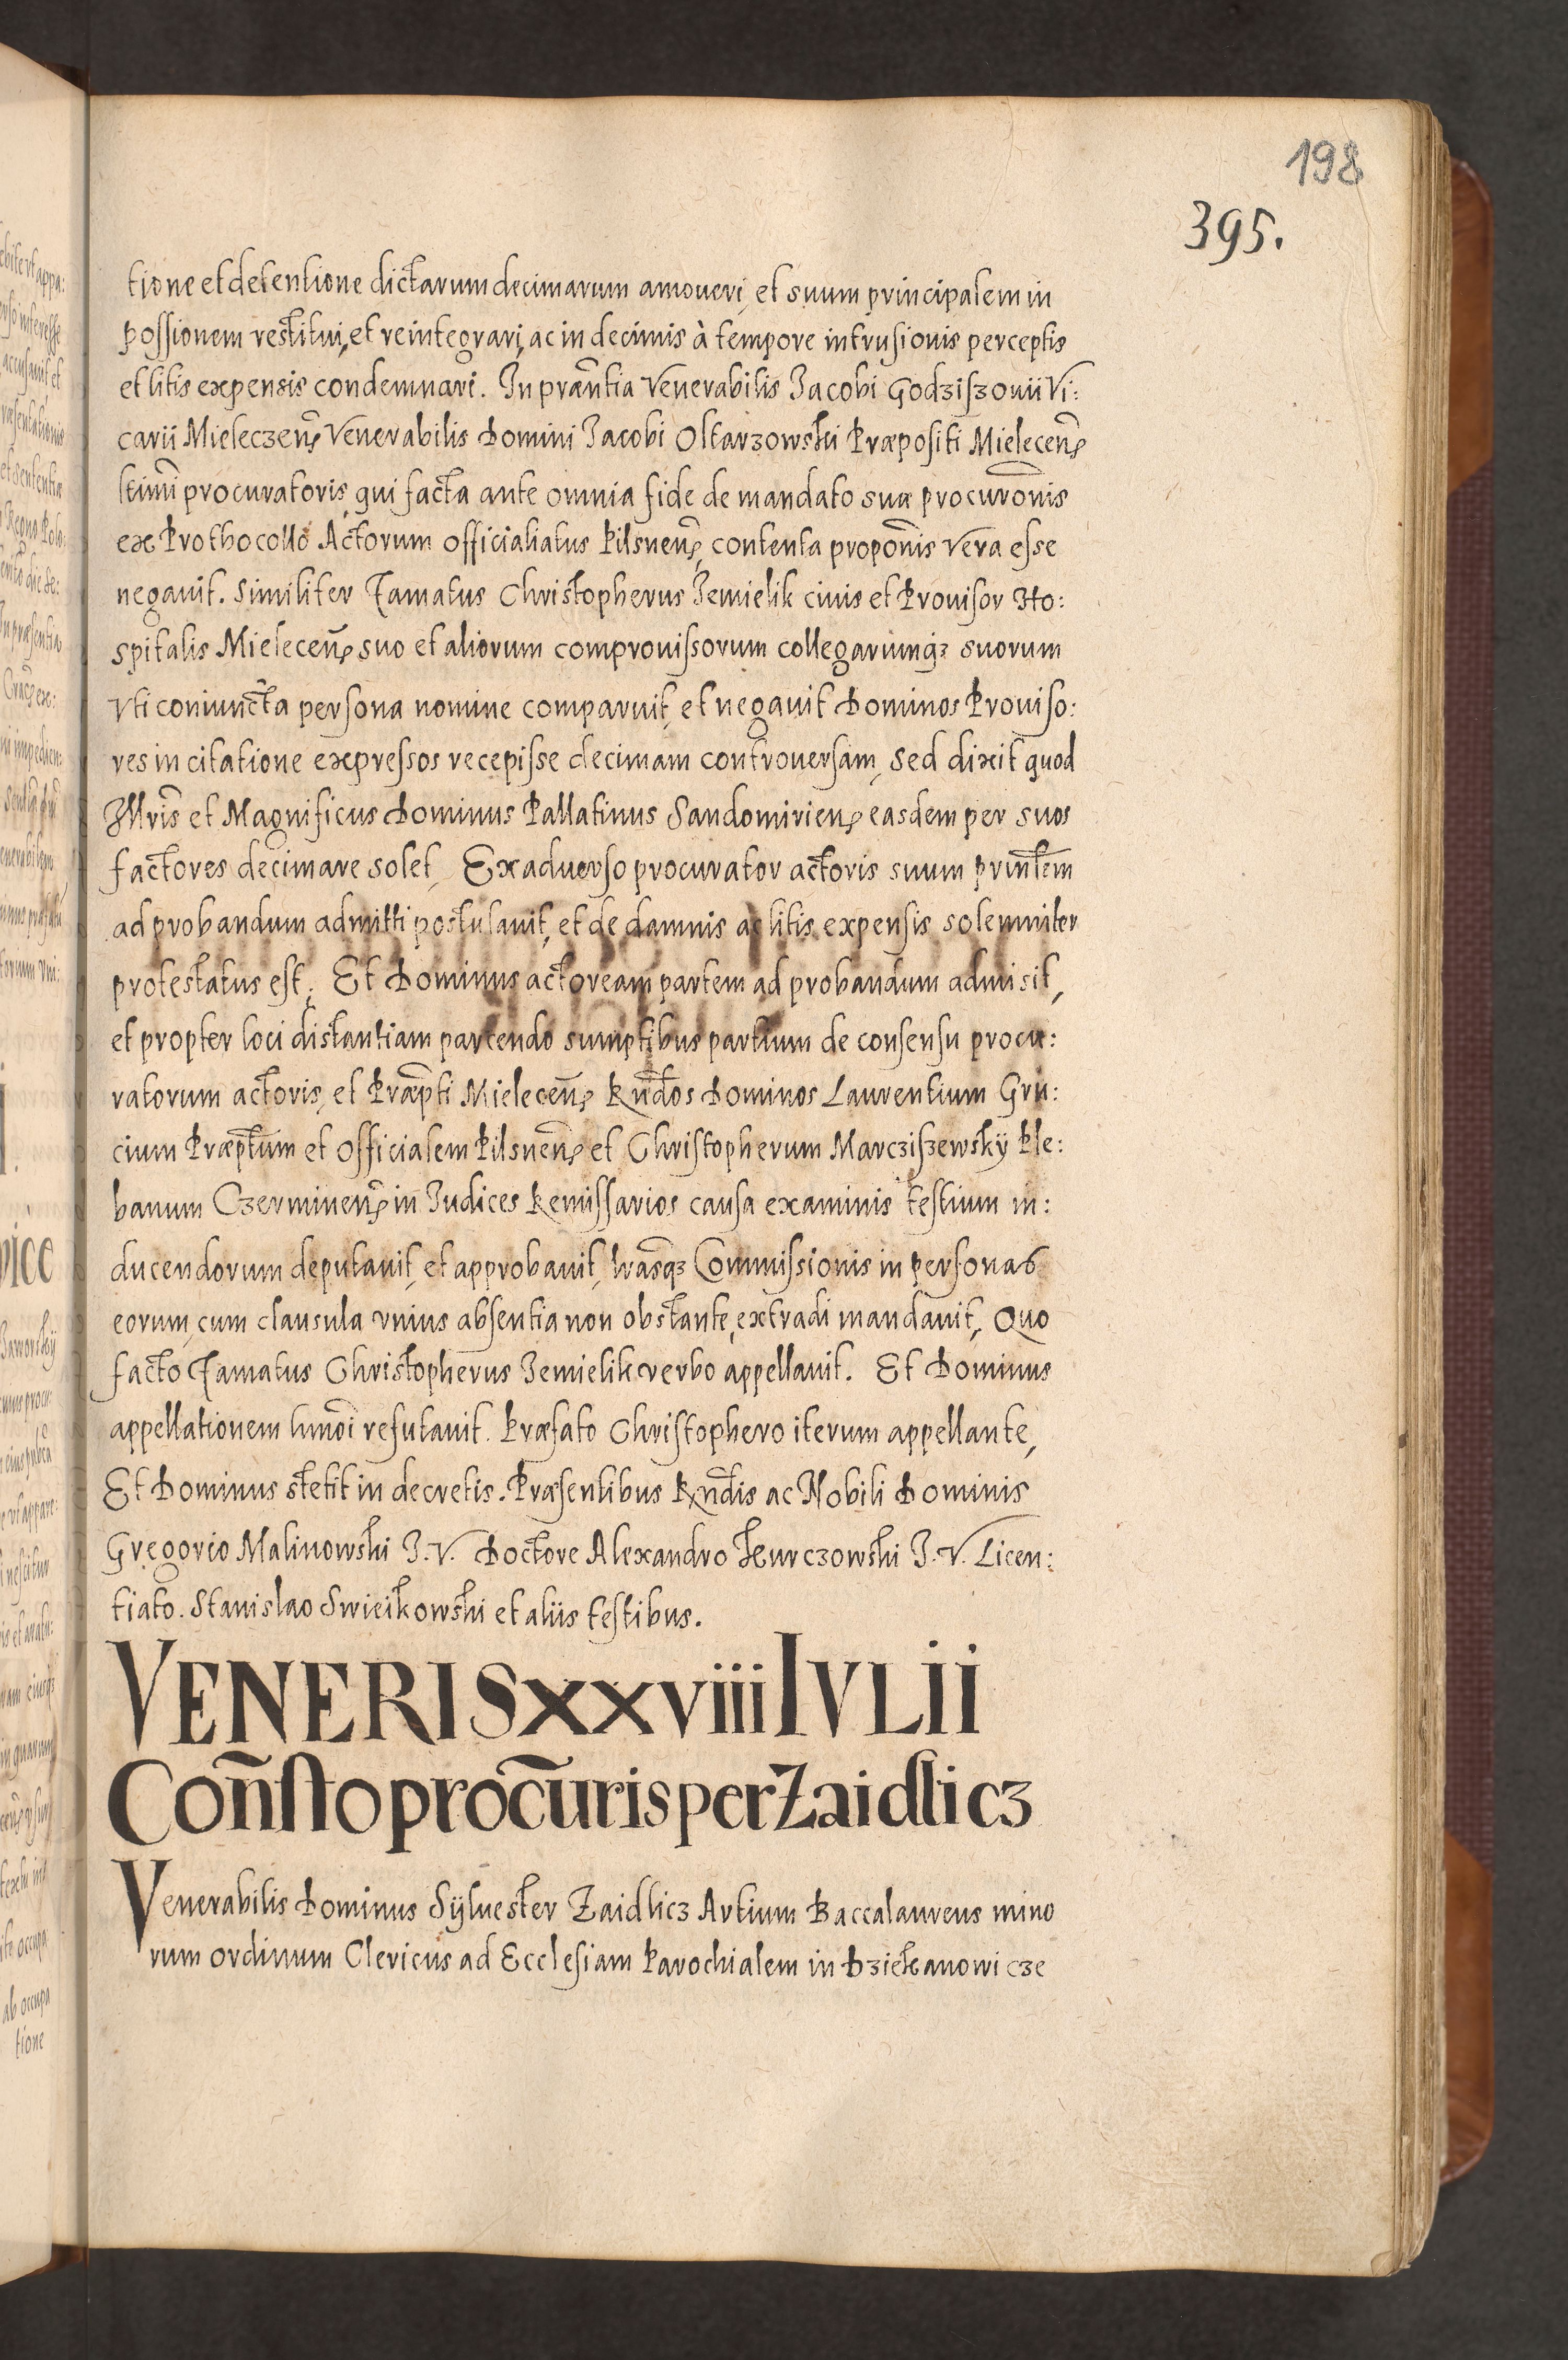 198
395.
tione et detentione dictarum decimarum amoueri, et suum principalem in
possionem restitui, et reintegrari, ac in decimis à tempore intrusionis perceptis
et litis expensis condemnari. In præñtia Venerabilis Jacobi Godziszouii Vi:
carii Mieleczeñ Venerabilis Domini Jacobi Oltarzowski Præpositi Mieleceñ
ltimi procuratoris, qui facta ante omnia fide de mandato suæ procurõnis
ex Prothocollo Actorum Officialatus Pilsneñ, contenta propõnis Vera esse
negauit. Similiter Famatus Christopherus Jemielik ciuis et Prouisor Ho:
spitalis Mieleceñ suo et aliorum comprouissorum collegarumq3 suorum
Vti coniuncta persona nomine comparuit, et negauit Dominos Prouiso:
res in citatione expressos recepisse decimam controuersam, sed dixit quod
Illris et Magnificus Dominus Pallatinus Sandomirieñ easdem per suos
factores decimare solet, Ex aduerso procurator actoris suum prinlem
ad probandum admitti postulauit, et de damnis ac litis expensis solemniter
protestatus est. Et Dominus actoream partem ad probandum admisit,
et propter loci distantiam parcendo sumptibus partium de consensu procu:
ratorum actoris, et Præpti Mieleceñ Rndos Dominos Laurentium Gru:
cium Præptum et Officialem Pilsneñ et Christopherum Marcziszewsky Ple:
banum Czermineñ in Judices Remissarios causa examinis testium in:
ducendorum deputauit, et approbauit, lrasq3 Commissionis in personas
eorum, cum clausula vnius absentia non obstante, extradi mandauit, Quo
facto Famatus Christopherus Jemielik verbo appellauit. Et Dominus
appellationem hmoi refutauit. Præfato Christophero iterum appellante,
Et Dominus stetit in decretis. Præsentibus Rndis ac Nobili Dominis
Gregorio Malinowski J. V. Doctore Alexandro Kurczowski J. V. Licen:
tiato. Stanislao Swieikowski et aliis testibus.
VENERIS XXViiii IVLii
Coñsto procuris per Zaidlicz
Venerabilis Dominus Sylvester Zaidlicz Artium Baccalaureus mino
rum ordinum Clericus ad Ecclesiam Parochialem in Dziekanowicze